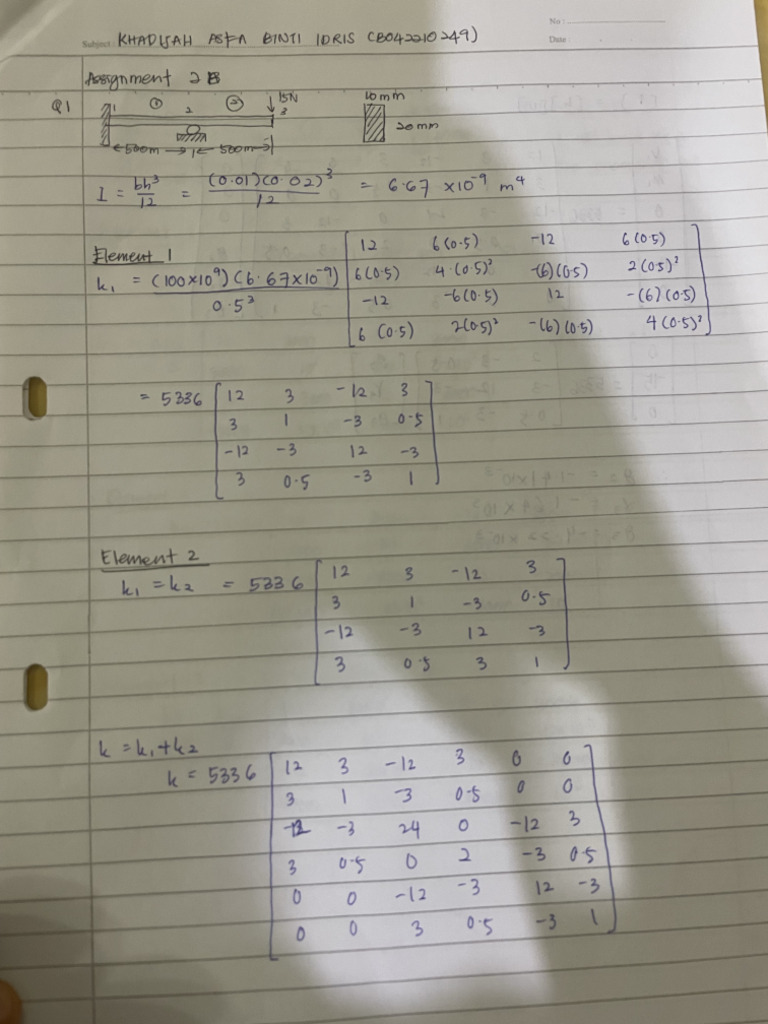 No :
Subject KHADIJAH ASFA BINTI IDRIS (B042210249) Date
Assignment 2B
Q1 1 ① 2 ② 15N 3 10mm
20mm
500m 500m
I = bh³/12 = (0.01)(0.02)³/12 = 6.67 x10⁻⁹ m⁴
Element 1
12 6(0.5) -12 6(0.5)
k₁ = (100x10⁹)(6.67x10⁻⁹)/0.5³ 6(0.5) 4.(0.5)² -(6)(0.5) 2(0.5)²
-12 -6(0.5) 12 -(6)(0.5)
6(0.5) 2(0.5)² -(6)(0.5) 4(0.5)²
= 5336 12 3 -12 3
3 1 -3 0.5
-12 -3 12 -3
3 0.5 -3 1
Element 2
k₁ = k₂ = 5336 12 3 -12 3
3 1 -3 0.5
-12 -3 12 -3
3 0.5 3 1
k = k₁ + k₂
k = 5336 12 3 -12 3 0 0
3 1 -3 0.5 0 0
-12 -3 24 0 -12 3
3 0.5 0 2 -3 0.5
0 0 -12 -3 12 -3
0 0 3 0.5 -3 1